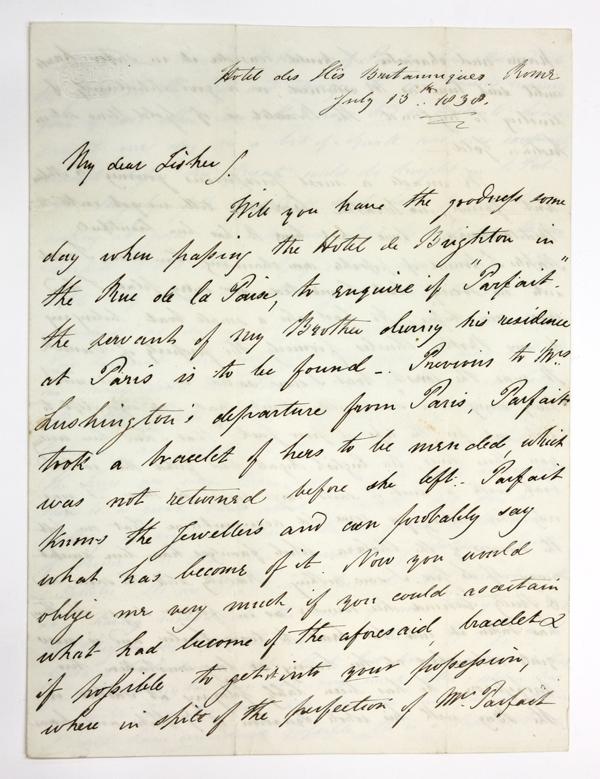 Hotel des Iles Britanniques Rome
July 13th. 1838.
My dear Lisher,
Will you have the goodness some
day when passing the Hotel de Brighton in
the Rue de la Paix, to enquire if "Parfait"
the servant of my Brother during his residence
at Paris is to be found -. Previous to Mrs
Lushington's departure from Paris, Parfait
took a bracelet of hers to be mended, which
was not returned before she left. Parfait
knows the Jeweller's and can probably say
what has become of it. Now you would
oblige me very much, if you could ascertain
what had become of the aforesaid bracelet &
if possible to get it into your possession,
where in spite of the perfection of Mr. Parfait